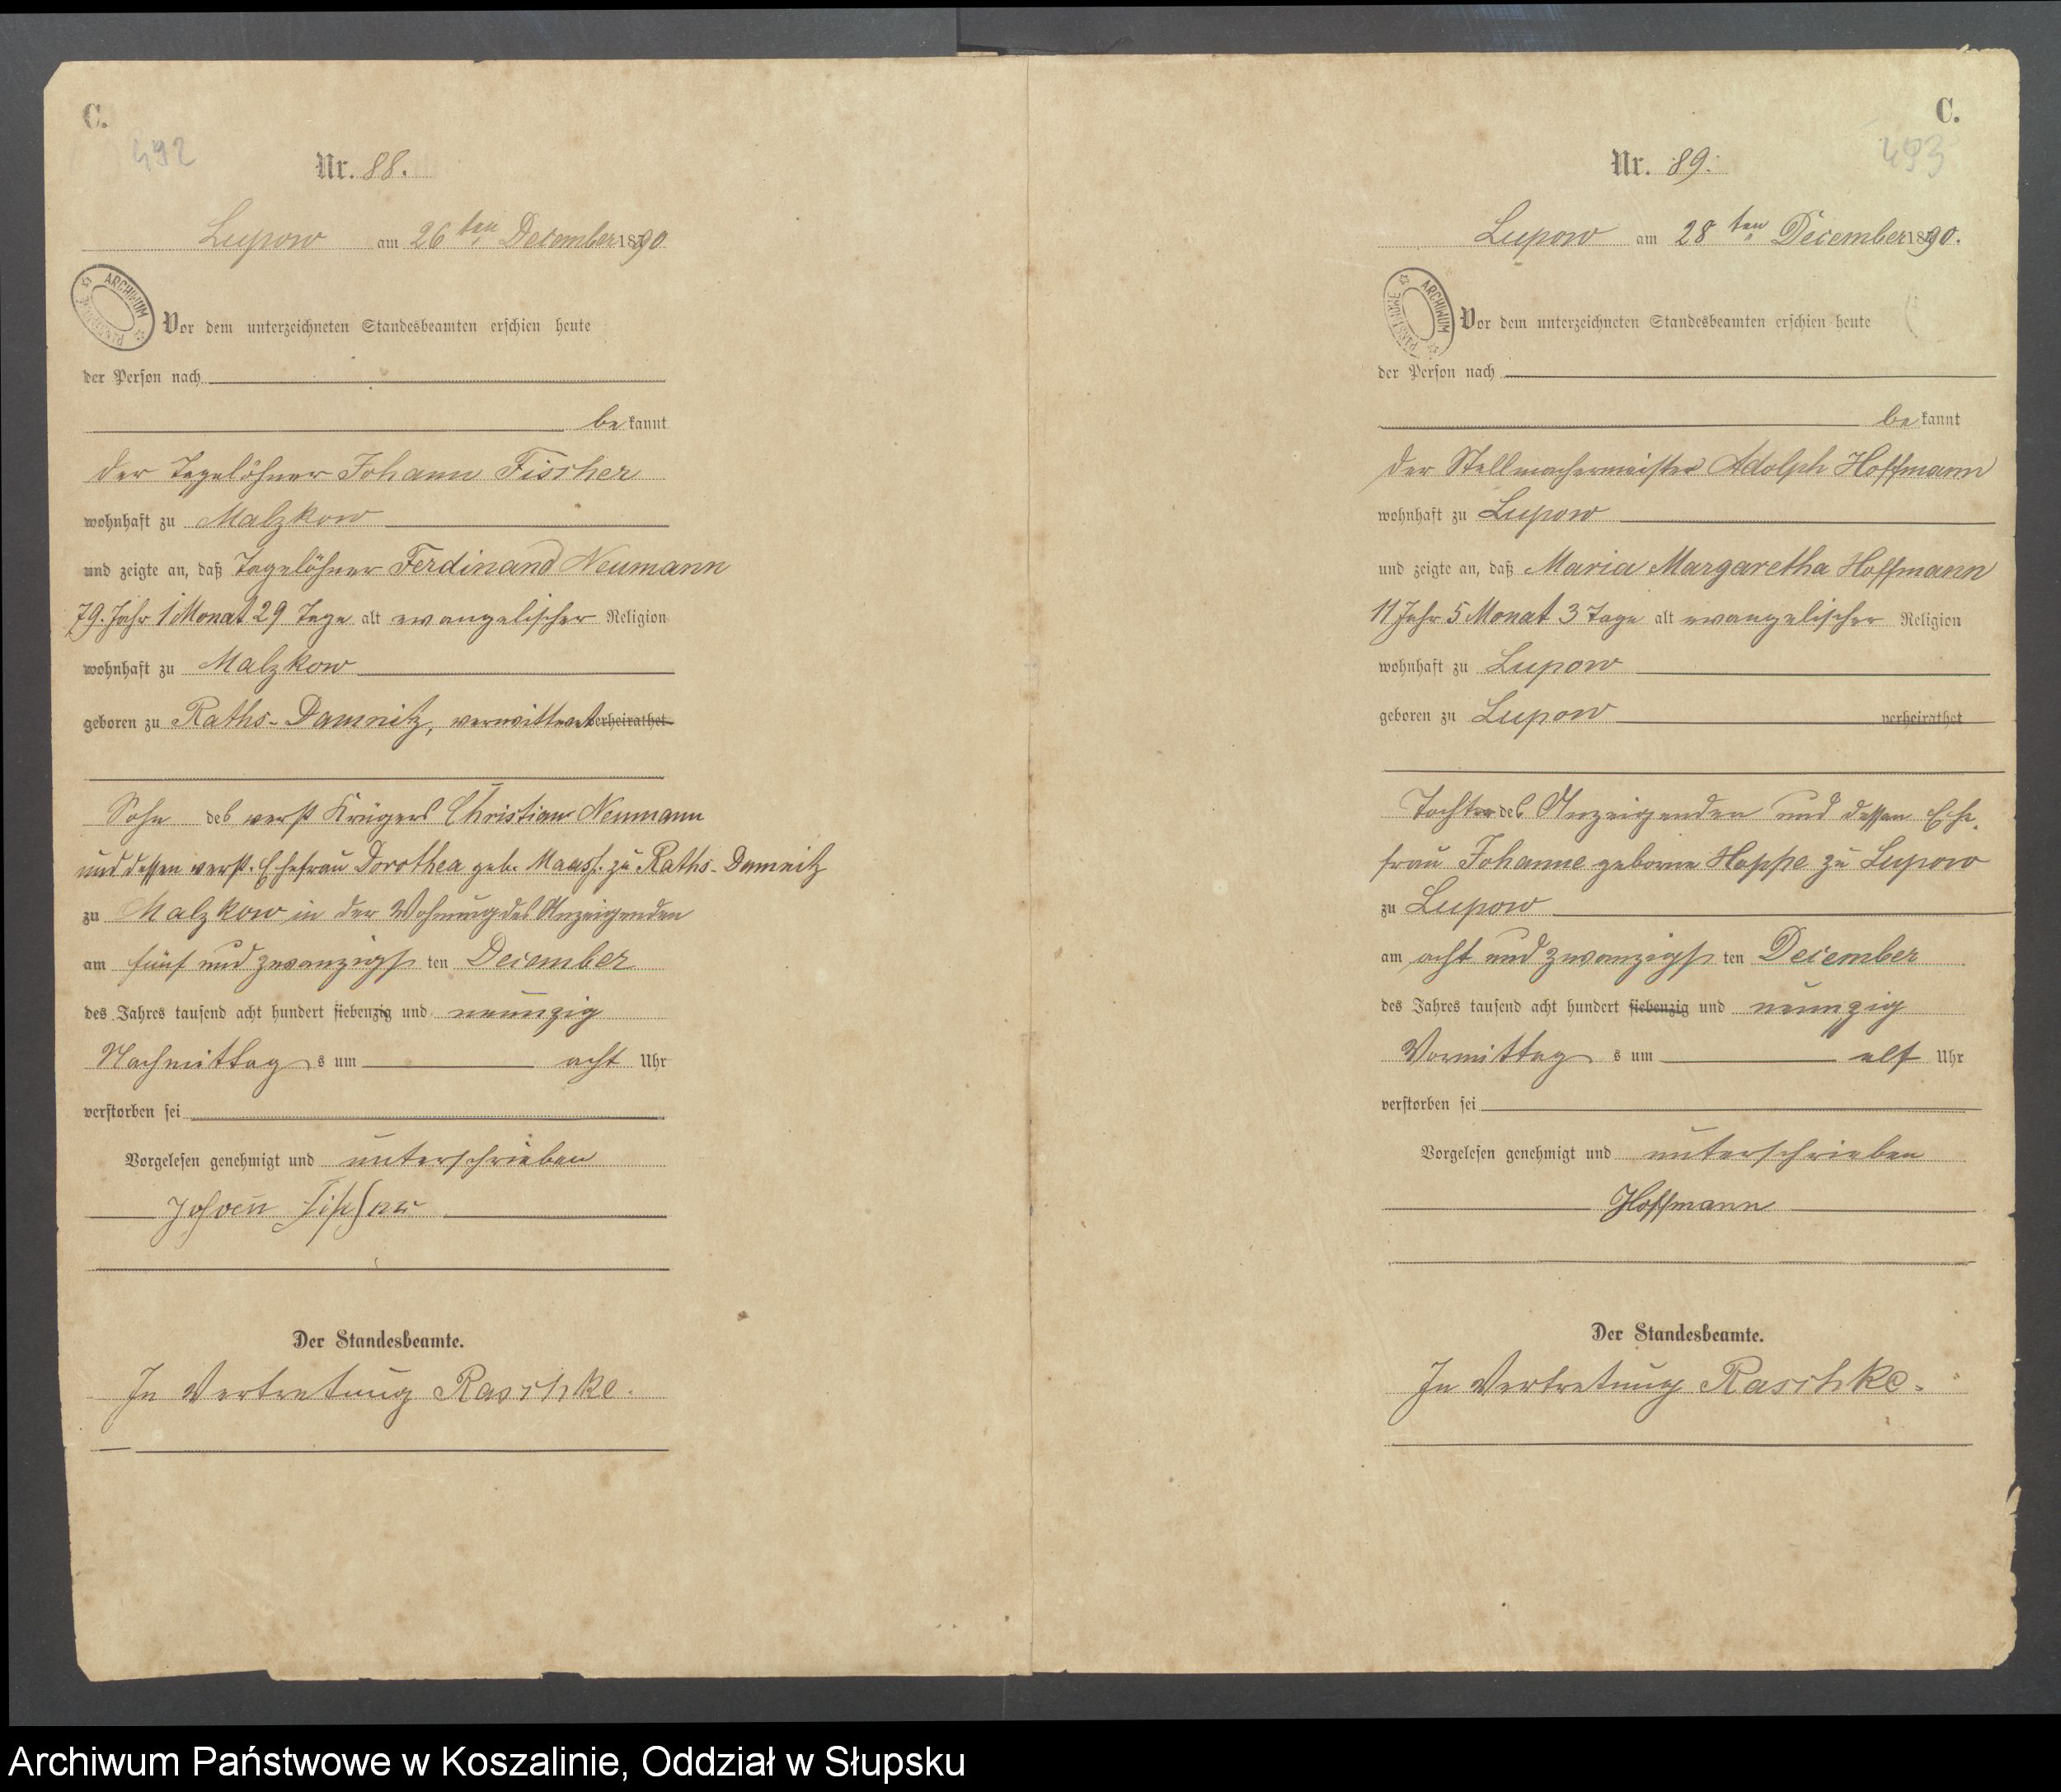 C.
492
Nr. 88.
Lupow am 26ten December 1890
ARCHIWUM PAŃSTWOWE
Vor dem unterzeichneten Standesbeamten erschien heute
der Person nach
bekannt
der Tagelöhner Johann Fischer
wohnhaft zu Malzkow
und zeigte an, daß Tagelöhner Ferdinand Neumann
79 Jahr 1 Monat 29 Tage alt evangelischer Religion
wohnhaft zu Malzkow
geboren zu Raths-Damnitz, verwittwet verheirathet
Sohn des verst Krügers Christian Neumann
und dessen verst. Ehefrau Dorothea geb. Maass. zu Raths-Damnitz
zu Malzkow in der Wohnung des Anzeigenden
am fünf und zwanzigsten December
des Jahres tausend acht hundert siebenzig und neunzig
Nachmittags um acht Uhr
verstorben sei
Vorgelesen genehmigt und unterschrieben
Johann Fischer
Der Standesbeamte.
In Vertretung Raschke.
C.
493
Nr. 89.
Lupow am 28ten December 1890.
ARCHIWUM PAŃSTWOWE
Vor dem unterzeichneten Standesbeamten erschien heute
der Person nach
bekannt
der Stellmachermeister Adolph Hoffmann
wohnhaft zu Lupow
und zeigte an, daß Maria Margaretha Hoffmann
11 Jahr 5 Monat 3 Tage alt evangelischer Religion
wohnhaft zu Lupow
geboren zu Lupow verheirathet
Tochter des Anzeigenden und dessen Ehe-
frau Johanne geborne Hoppe zu Lupow
zu Lupow
am acht und zwanzigsten December
des Jahres tausend acht hundert siebenzig und neunzig
Vormittags um elf Uhr
verstorben sei
Vorgelesen genehmigt und unterschrieben
Hoffmann
Der Standesbeamte.
In Vertretung Raschke.
Archiwum Państwowe w Koszalinie, Oddział w Słupsku